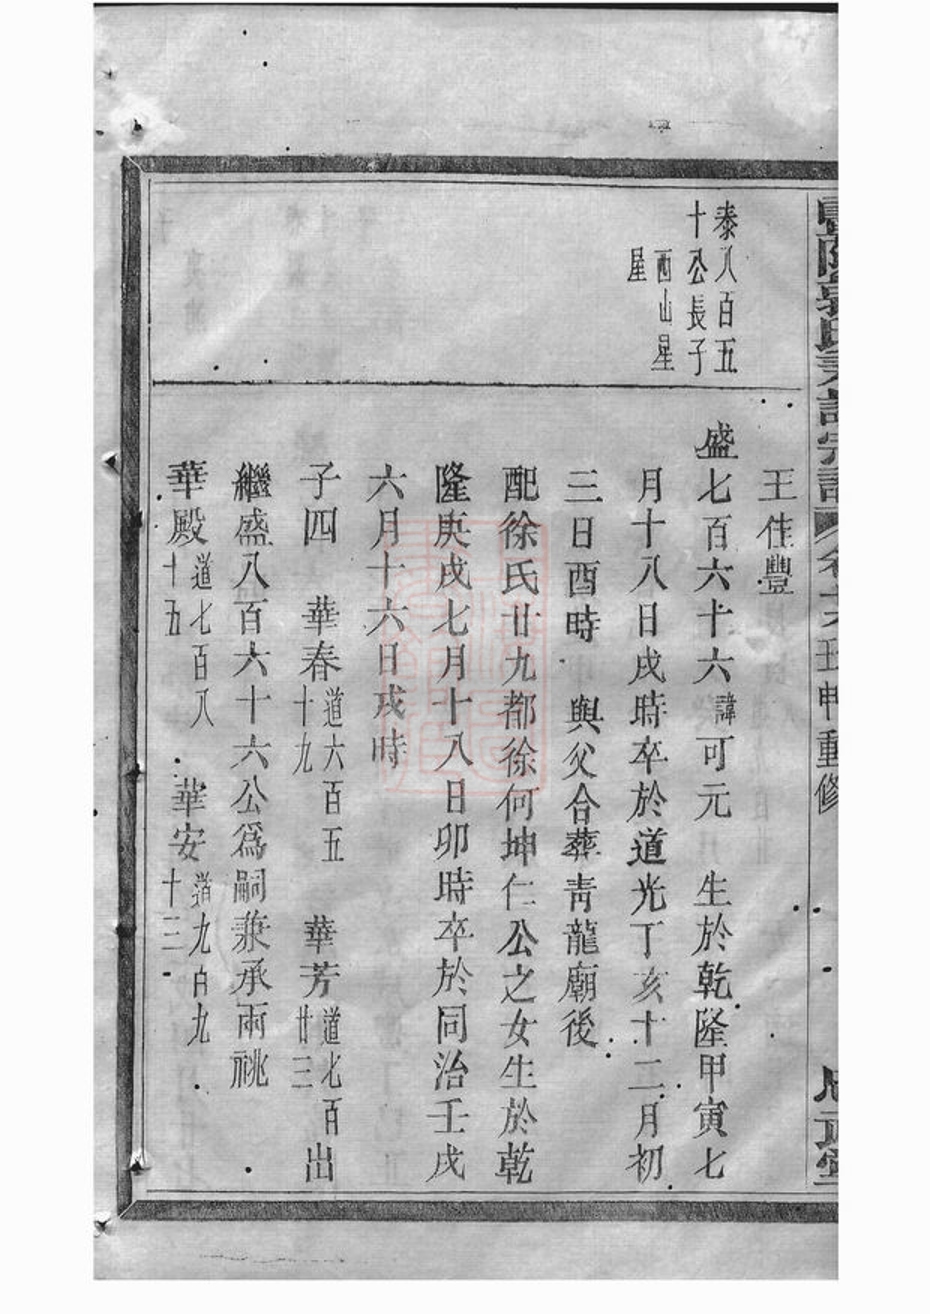 重修
泰八百五
十公長子
西山星
星
王佳豐
盛七百六十六諱可元 生於乾隆甲寅七
月十八日戌時卒於道光丁亥十二月初
三日酉時 與父合葬青龍廟後
配徐氏廿九都徐何坤仁公之女生於乾
隆庚戌七月十八日卯時卒於同治壬戌
六月十六日戌時
子四 華春道六百五十九 華芳道七百廿三出
繼盛八百六十六公為嗣兼承兩祧
華殿道七百八十五 華安道九百九十三